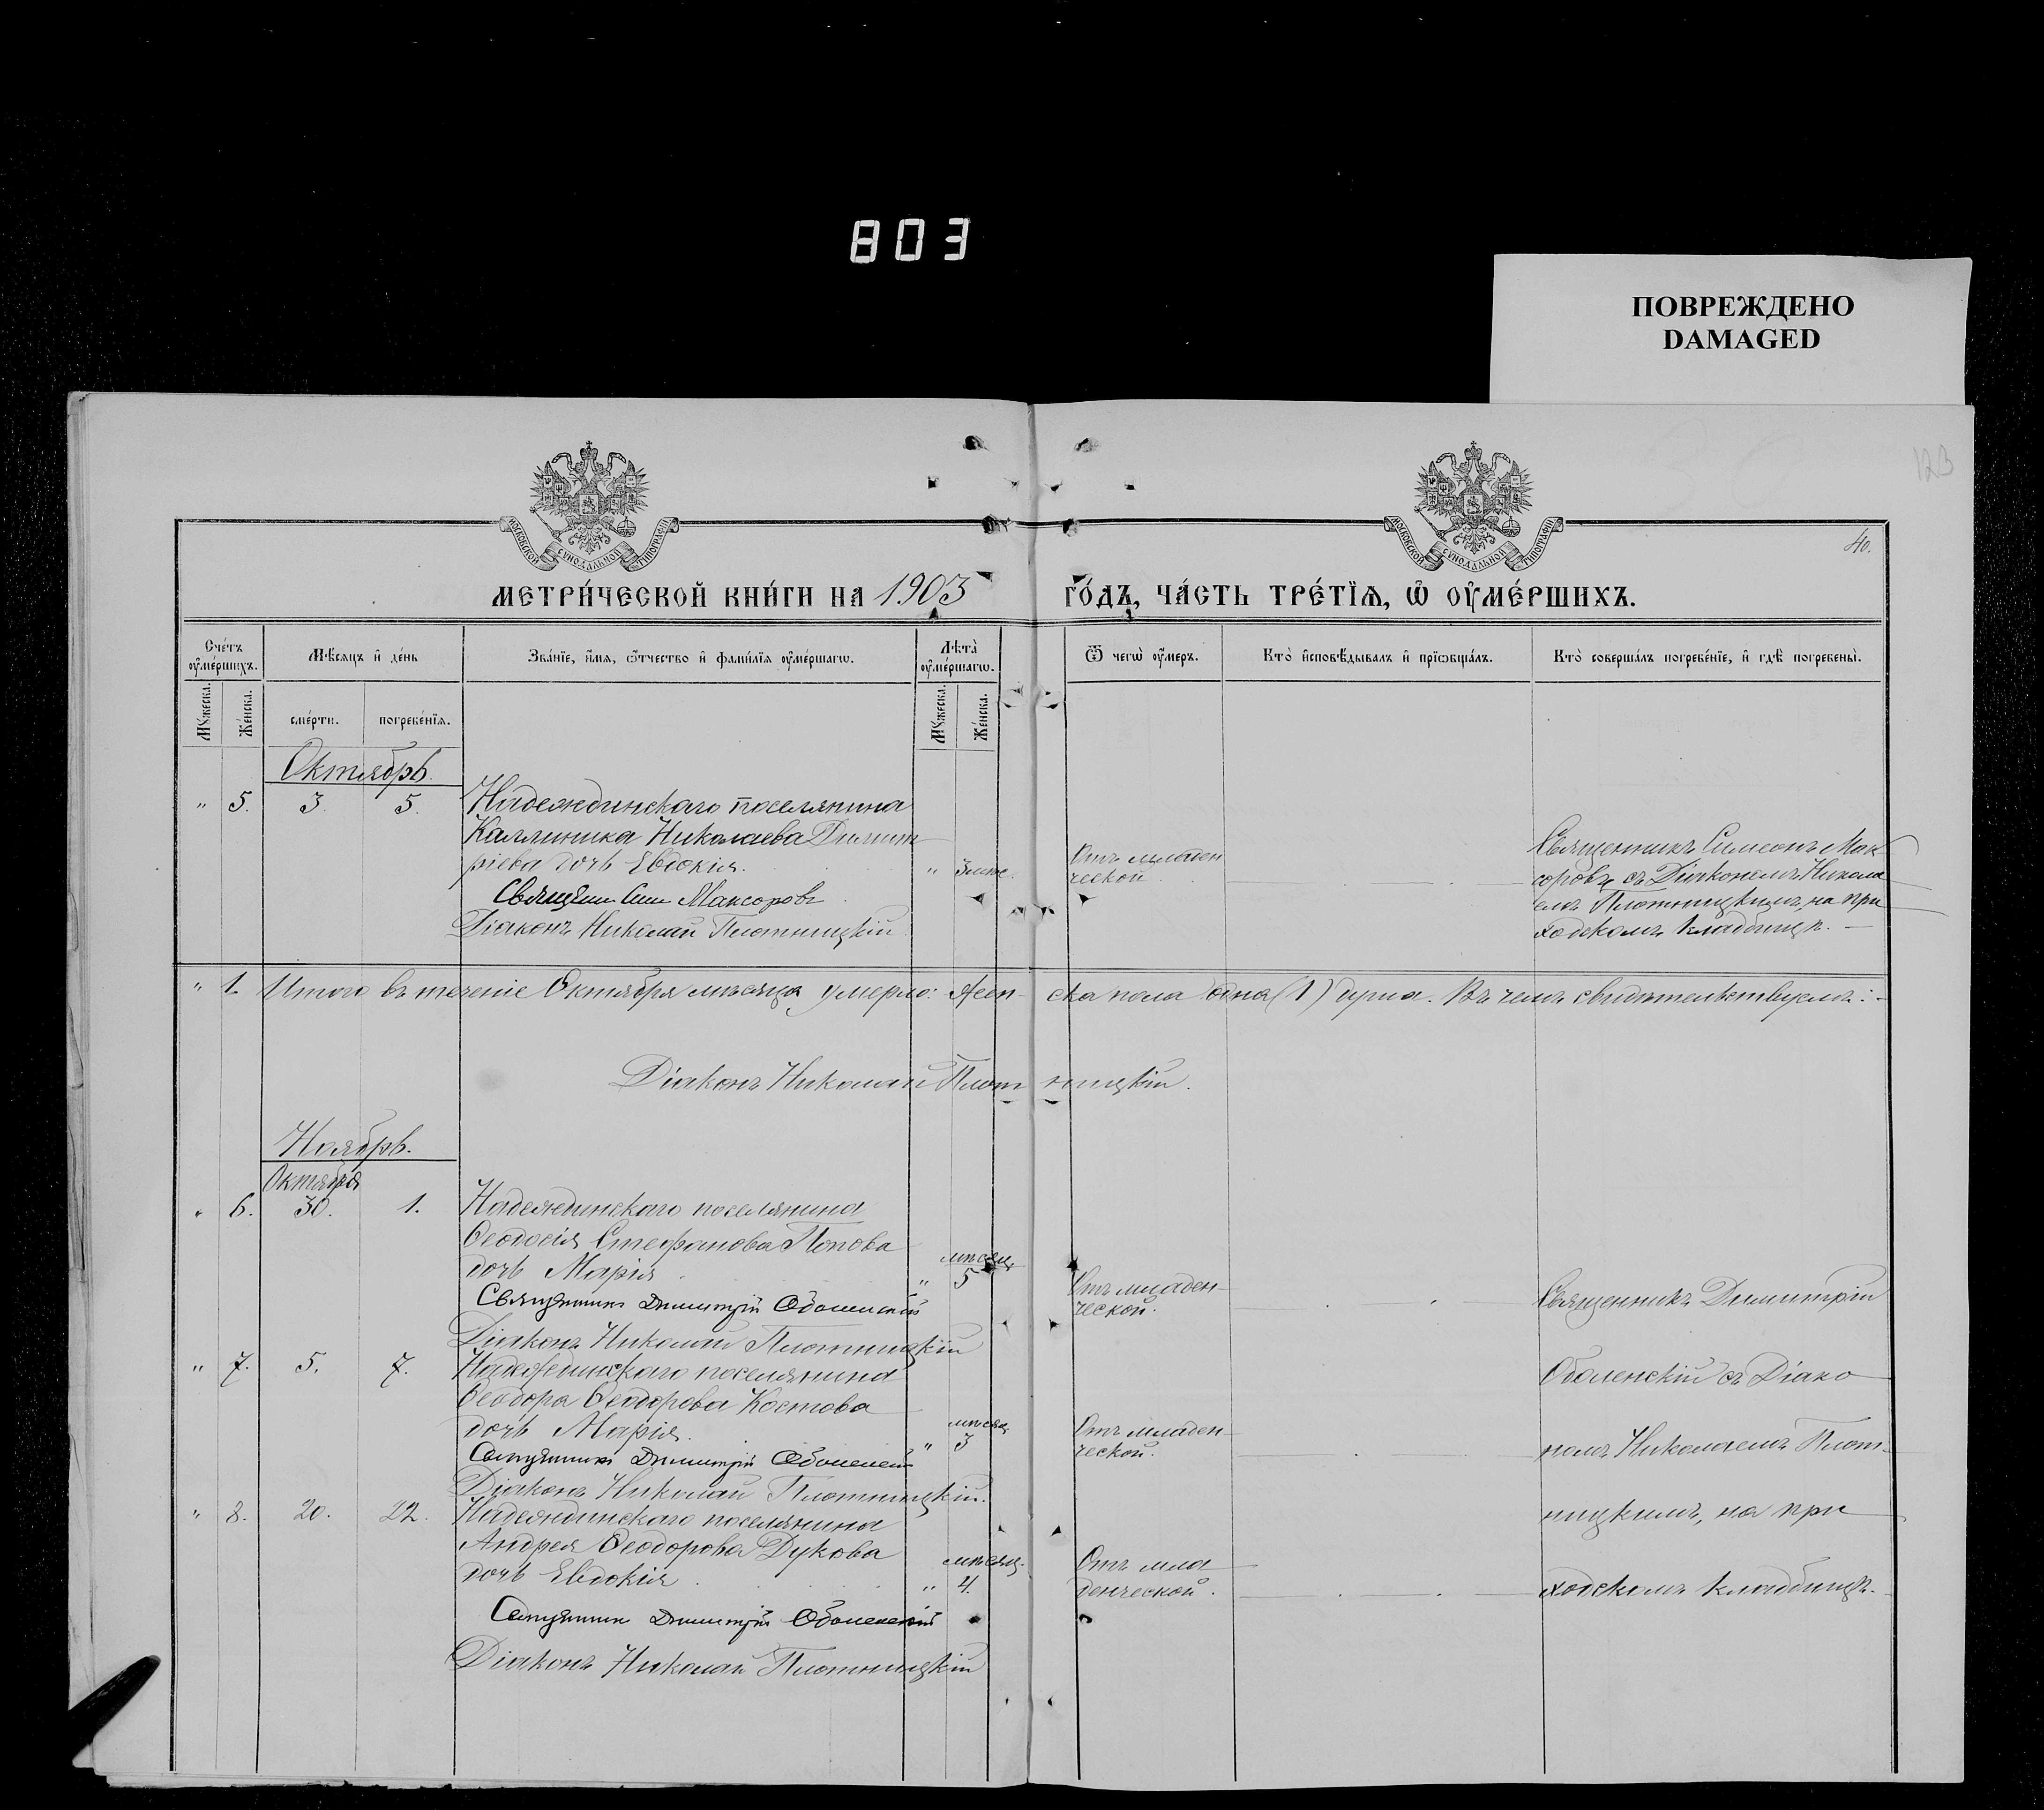 803
ПОВРЕЖДЕНО
DAMAGED
123
МОСКОВСКОЙ СѴНОДАЛЬНОЙ ТИПОГРАФІИ
МОСКОВСКОЙ СѴНОДАЛЬНОЙ ТИПОГРАФІИ
40.
МЕТРИ́ЧЕСКОЙ КНИ́ГИ НА 1903
ГО́ДЪ, ЧА́СТЬ ТРЕ́ТЇѦ, Ѽ ОУ҆МЕ́РШИХЪ.
Сче́тъ оу҆ме́ршихъ.
Мѣ́сяцъ и҆ де́нь
Зва́нїе, и҆́мѧ, ѻ҆́тчество и҆ фами́лїѧ оу҆ме́ршагѡ.
Лѣта̀ оу҆ме́ршагѡ.
Ѿ чегѡ̀ оу҆́меръ.
Кто̀ и҆сповѣ́дывалъ и҆ прїѡбща́лъ.
Кто̀ соверша́лъ погребе́нїе, и҆ гдѣ̀ погребены̀.
Мꙋжеска.
Же́нска.
сме́рти.
погребе́нїѧ.
Мꙋжеска.
Же́нска.
Октябрь.
" 5. 3. 5. Надеждинскаго поселянина
Каллиника Николаева Димит
ріева дочь Евдокія. " 3 мѣс.
Священ Сим Максоровъ
Діаконъ Николай Плотницкій
Отъ младен
ческой
Священникъ Симеонъ Мак
соровъ съ Діакономъ Никола
емъ Плотницкимъ, на при
ходскомъ кладбищѣ.
" 1 Итого въ теченіе Октября мѣсяца умерло: Жен- ска пола одна (1) душа. Въ чемъ свидѣтельствуемъ:
Діаконъ Николай Плот ницкій.
Ноябрь.
Октября
" 6. 30. 1. Надеждинскаго поселянина
Ѳеодосія Стефанова Попова
дочь Марія " мѣсяц. 5
Священникъ Димитрій Оболенскій
Діаконъ Николай Плотницкій
Отъ младен-
ческой.
Священникъ Димитрій
" 7. 5. 7. Надеждинскаго поселянина
Ѳеодора Ѳеодорова Костова
дочь Марія. " мѣсяц 3
Священникъ Димитрій Оболенскій
Діаконъ Николай Плотницкій.
Отъ младен-
ческой.
Оболенскій съ Діако
номъ Николаемъ Плот-
" 8. 20. 22. Надеждинскаго поселянина
Андрея Ѳеодорова Дукова
дочь Евдокія " мѣсяц. 4.
Священник Димитрій Оболенскій
Діаконъ Николай Плотницкій
Отъ мла
денческой.
ницкимъ, на при
ходскомъ кладбищѣ.